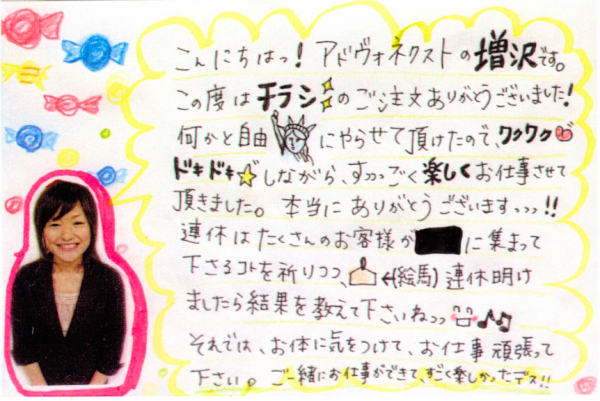 こんにちはっ! アドヴォネクストの増沢です。
この度はチラシのご注文ありがとうございました!
何かと自由にやらせて頂けたので、ワクワク
ドキドキしながら、すっっごく楽しくお仕事させて
頂きました。本当にありがとうございますっっっ!!
連休はたくさんのお客様が に集まって
下さるコトを祈りつつ、←(絵馬)連休明け
ましたら結果を教えて下さいねっっ
それでは、お体に気をつけて、お仕事頑張って
下さい。ご一緒にお仕事ができて、すごく楽しかったデス!!